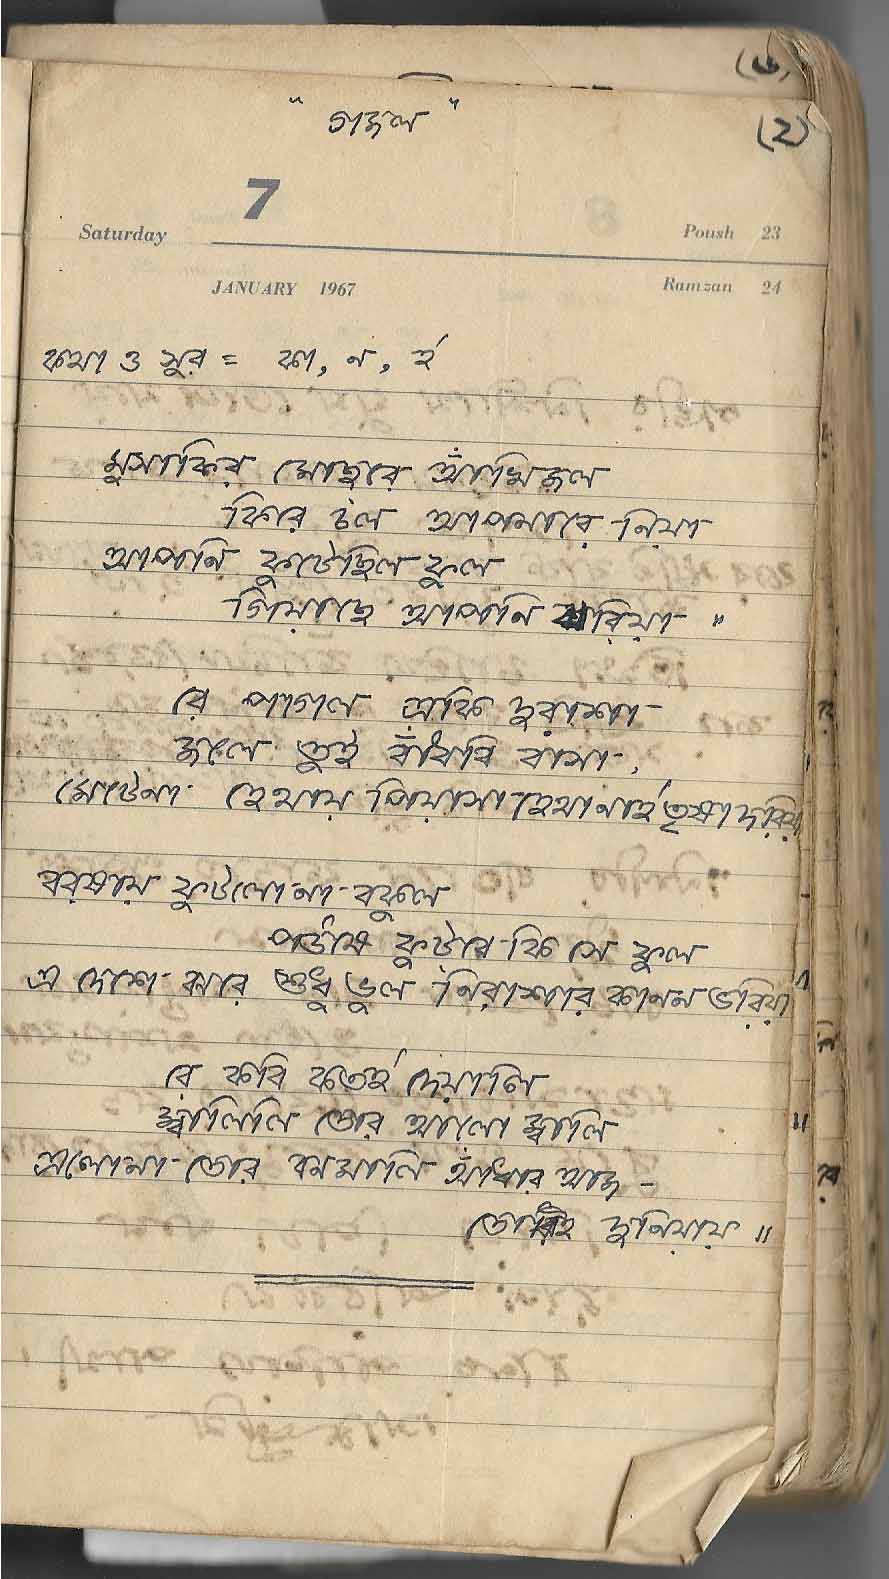 (2)
"গজল"
7
Saturday Poush 23
JANUARY 1967 Ramzan 24
কথা ও সুর = কা, ন, ই
মুসাফির মোছরে আঁখিজল
ফিরে চল আপনারে নিয়া
আপনি ফুটেছিল ফুল
গিয়াছে আপনি ঝরিয়া "
রে পাগল একি দুরাশা
জলে তুই বাঁধবি বাসা,
মেটেনা হেথায় পিয়াসা হেথা নাই তৃষা দরিয়া
বরষায় ফুটলো না বকুলে
পউষে ফুটবে কি সে ফুল
এ দেশে ঝরে শুধু ভুল নিরাশার কানন ভরিয়া
রে কবি কতই দেয়ালি
জ্বালিলি তোর আলো জ্বালি
এলোনা তোর বনমালি আঁধার আজ -
তোরই দুনিয়ায় "